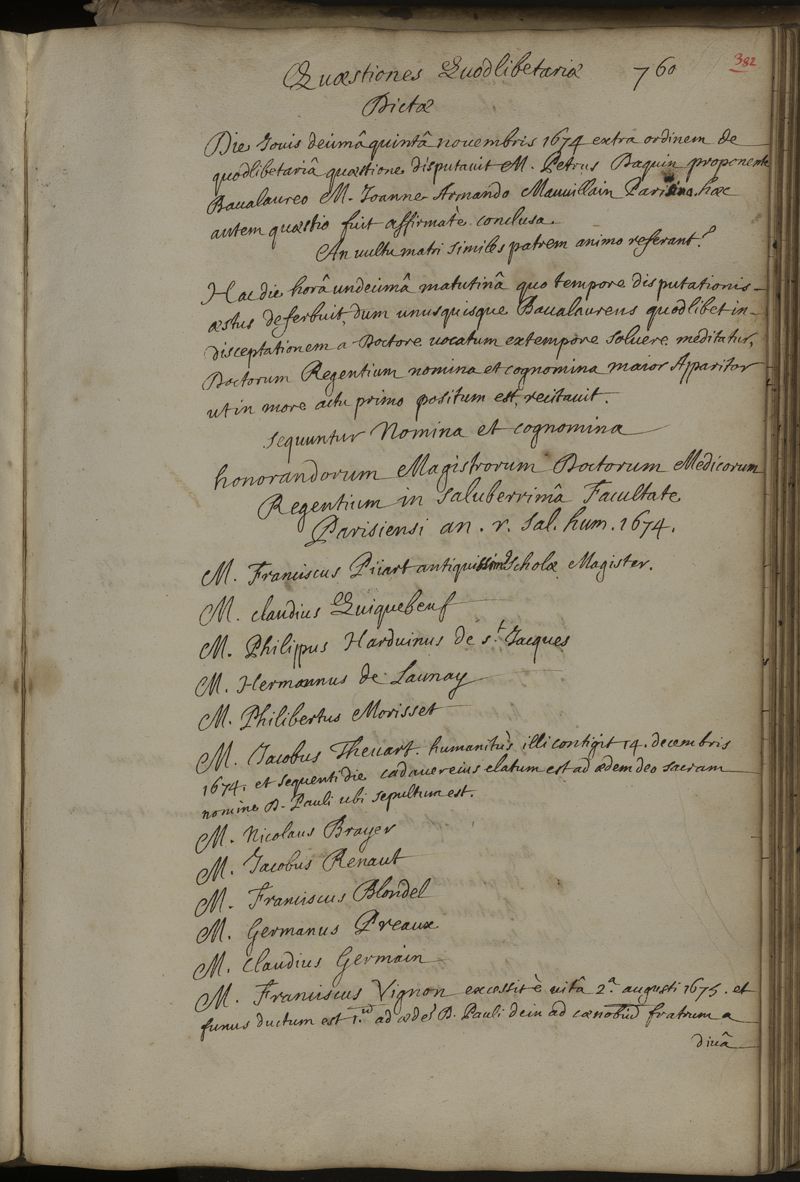 Quæstiones Quodlibetariæ 760 382
Dictæ
Die Jouis decimâ quintâ nouembris 1674 extra ordinem de
quodlibetariâ quæstione disputauit M. Petrus Baquin proponente
Baualaureo M. Joanne Armando Mauuillain Parisino. hæc
autem quæstio fuit affirmatè conclusa.
An vultu matri similes patrem animo referant?
Hac die horâ undecimâ matutinâ quo tempore disputationis
æstus deferbuit, dum unusquisque Baualaureus quodlibet in
disceptationem a Doctore uocatum extempore soluere meditatur,
Doctorum Regentium nomina et cognomina maior Apparitor
ut in more actu primo positum est, recitauit.
Sequuntur Nomina et cognomina
honorandorum Magistrorum Doctorum Medicorum
Regentium in saluberrimâ Facultate
Parisiensi an. r. sal. hum. 1674.
M. Franciscus Pijart antiquissimꝰ scholæ Magister.
M. claudius Quiquebeuf
M. Philippus Harduinus De st. Jacques
M. Hermannus de Launay
M. Philibertus Morisset
M. Jacobus Theuart. humanitùs illi contigit 14. decembris
1674. et sequenti die cadauer eius elatum est ad ædem deo sacram
nomine D. Pauli ubi sepultum est.
M. Nicolaus Brayer
M. Jacobus Renaut
M. Franciscus Blondel
M. Germanus Preaux
M. claudius Germain
M. Franciscus Vignon excessit è uitâ 2a. augusti 1675. et
funus ductum est 1.ù ad ædes D. Pauli dein ad cœnobiū fratrum a
diuâ